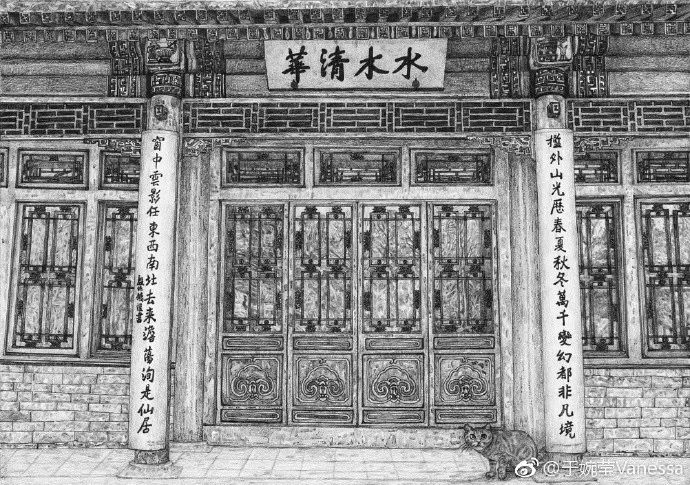 水木清華
檻外山光歷春夏秋冬萬千變幻都非凡境
窗中雲影任東西南北去來澹蕩洵是仙居
@于婉莹Vanessa